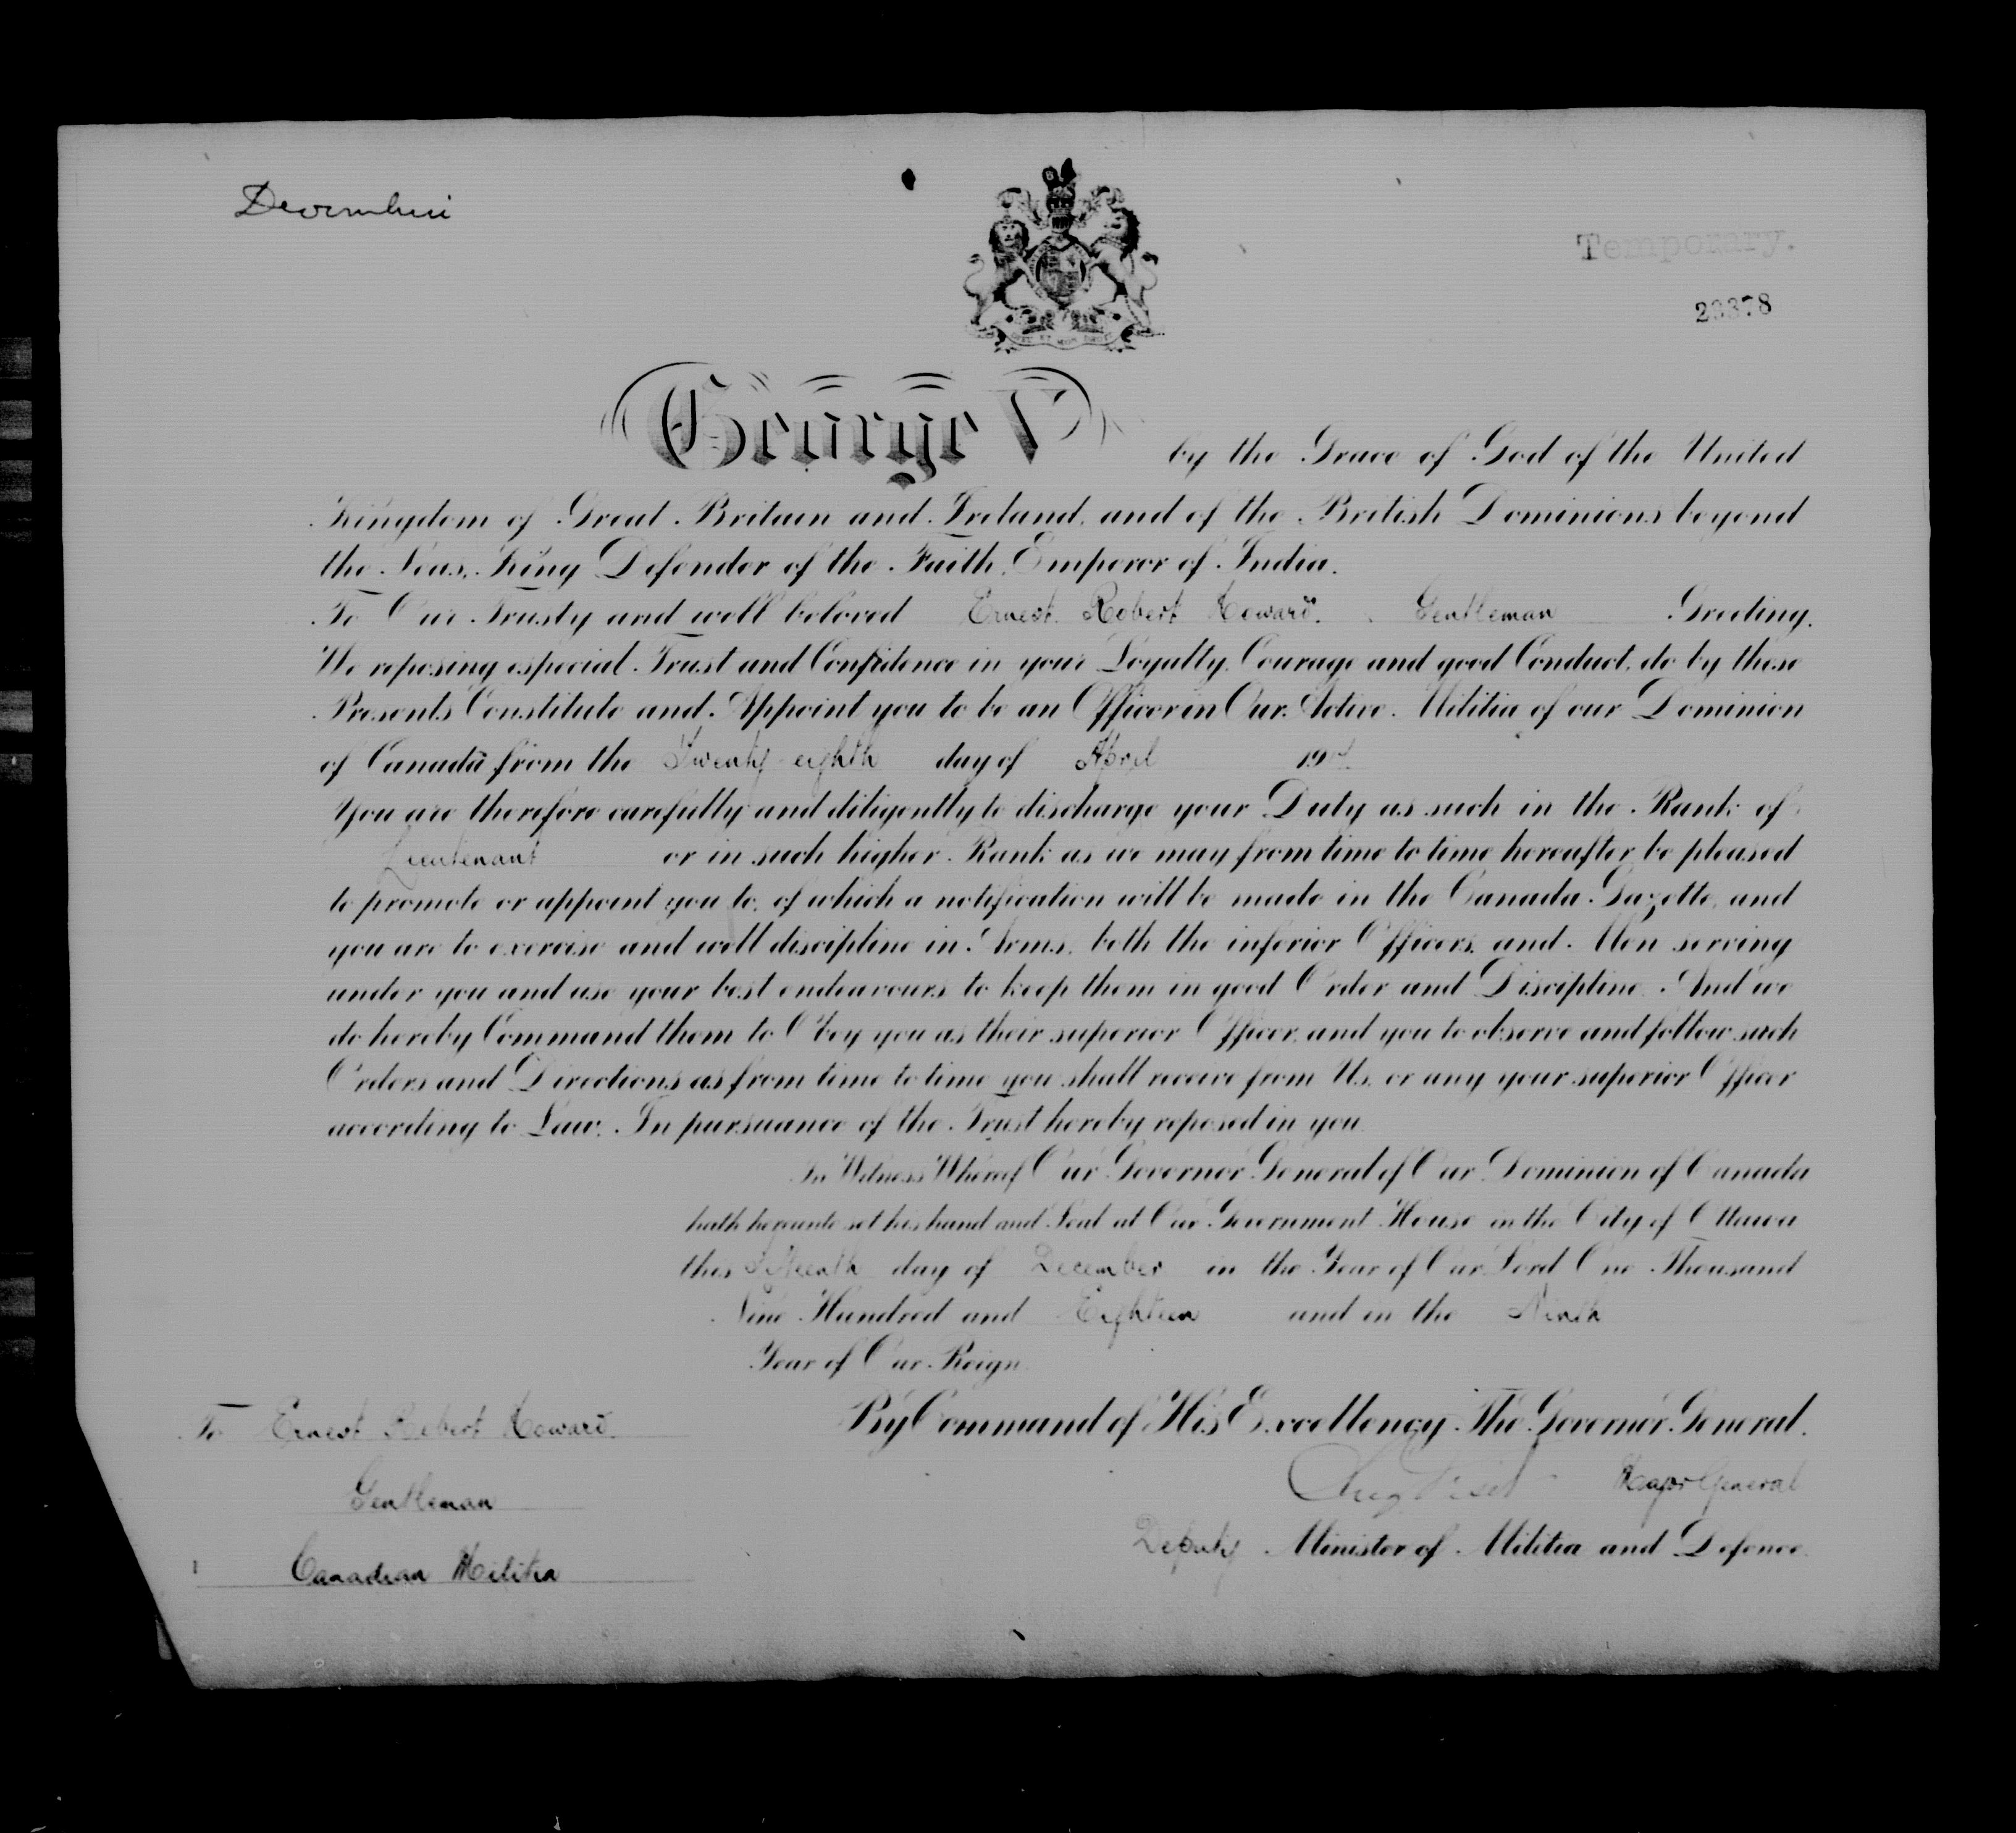 Devonshire
Temporary.
23378
DIEU ET MON DROIT
George V by the Grace of God of the United
Kingdom of Great Britain and Ireland, and of the British Dominions beyond
the Seas, King Defender of the Faith, Emperor of India.
To Our Trusty and well beloved Ernest Robert Howard. Gentleman Greeting.
We reposing especial Trust and Confidence in your Loyalty, Courage and good Conduct, do by these
Presents Constitute and Appoint you to be an Officer in Our Active Militia of our Dominion
of Canada from the Twenty eighth day of April 19
You are therefore carefully and diligently to discharge your Duty as such in the Rank of
Lieutenant or in such higher Rank as we may from time to time hereafter be pleased
to promote or appoint you to, of which a notification will be made in the Canada Gazette, and
you are to exercise and well discipline in Arms, both the inferior Officers, and Men serving
under you and use your best endeavours to keep them in good Order and Discipline. And we
do hereby Command them to Obey you as their superior Officer, and you to observe and follow such
Orders and Directions as from time to time you shall receive from Us, or any your superior Officer
according to Law. In pursuance of the Trust hereby reposed in you.
In Witness Whereof Our Governor General of Our Dominion of Canada
hath hereunto set his hand and Seal at Our Government House in the City of Ottawa
this Fifteenth day of December in the Year of Our Lord One Thousand
Nine Hundred and Eighteen and in the Ninth
Year of Our Reign.
By Command of His Excellency The Governor General.
Major General
Deputy Minister of Militia and Defence.
To Ernest Robert Howard.
Gentleman
Canadian Militia